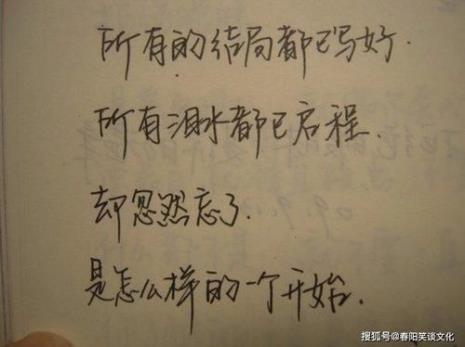 所有的结局都已写好.
所有泪水都已启程.
却忽然忘了.
是怎么样的一个开始.
搜狐号@春阳笑谈文化